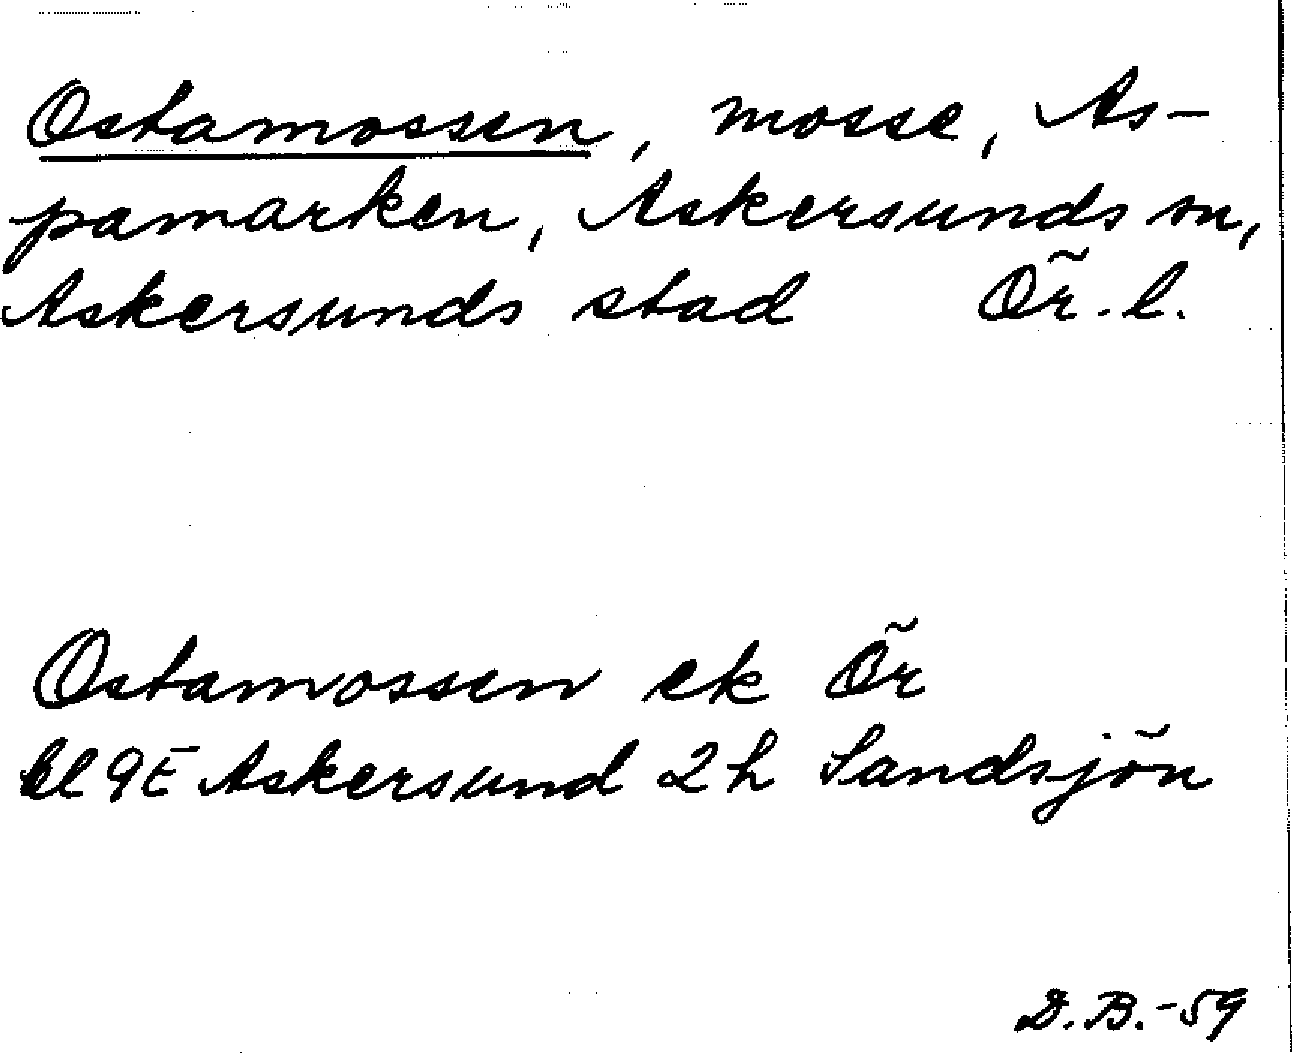 Ostamossen, mosse, As-
pamarken, Askersunds sn,
Askersunds stad Ör. l.
Ostamossen ek Ör
bl 9E Askersund 2h Sandsjön
D.B.-59